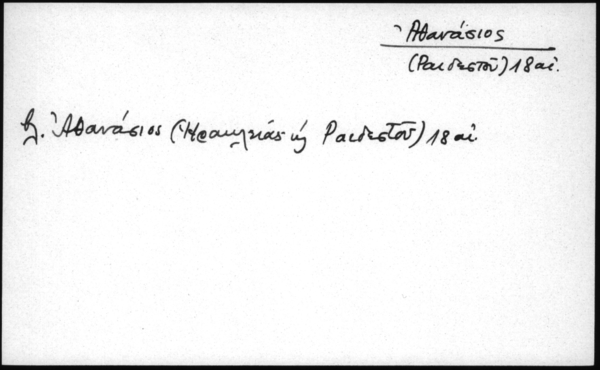 Ἀθανάσιος
(Ραιδεστοῦ) 18 αἰ.
βλ. Ἀθανάσιος (Ἡρακλείας ἢ Ραιδεστοῦ) 18 αἰ